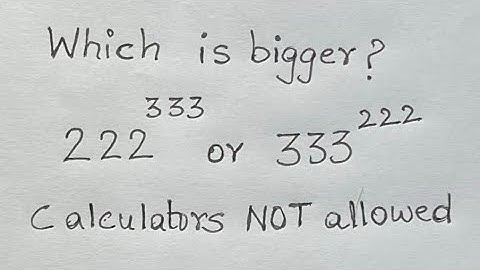 Which is bigger?
222³³³ or 333²²²
Calculators NOT allowed